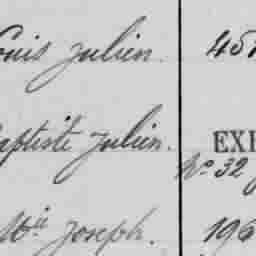 ouis Julien. 451
aptiste Julien. EXE
No 32
Mie Joseph. 196